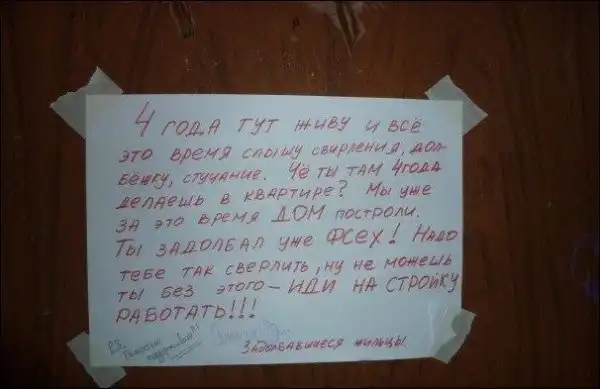 4 ГОДА ТУТ ЖИВУ И ВСЁ
ЭТО ВРЕМЯ СЛЫШУ СВИРЛЕНИЯ, ДОЛ-
БЁЖКУ, СТУЧАНИЕ. ЧЁ ТЫ ТАМ 4ГОДА
ДЕЛАЕШЬ В КВАРТИРЕ? МЫ УЖЕ
ЗА ЭТО ВРЕМЯ ДОМ ПОСТРОЛИ.
ТЫ ЗАДОЛБАЛ УЖЕ ФСЕХ! НАДО
ТЕБЕ ТАК СВЕРЛИТЬ, НУ НЕ МОЖЕШЬ
ТЫ БЕЗ ЭТОГО – ИДИ НА СТРОЙКУ
РАБОТАТЬ!!!
ЗАДОЛБАВШИЕСЯ ЖИЛЬЦЫ.